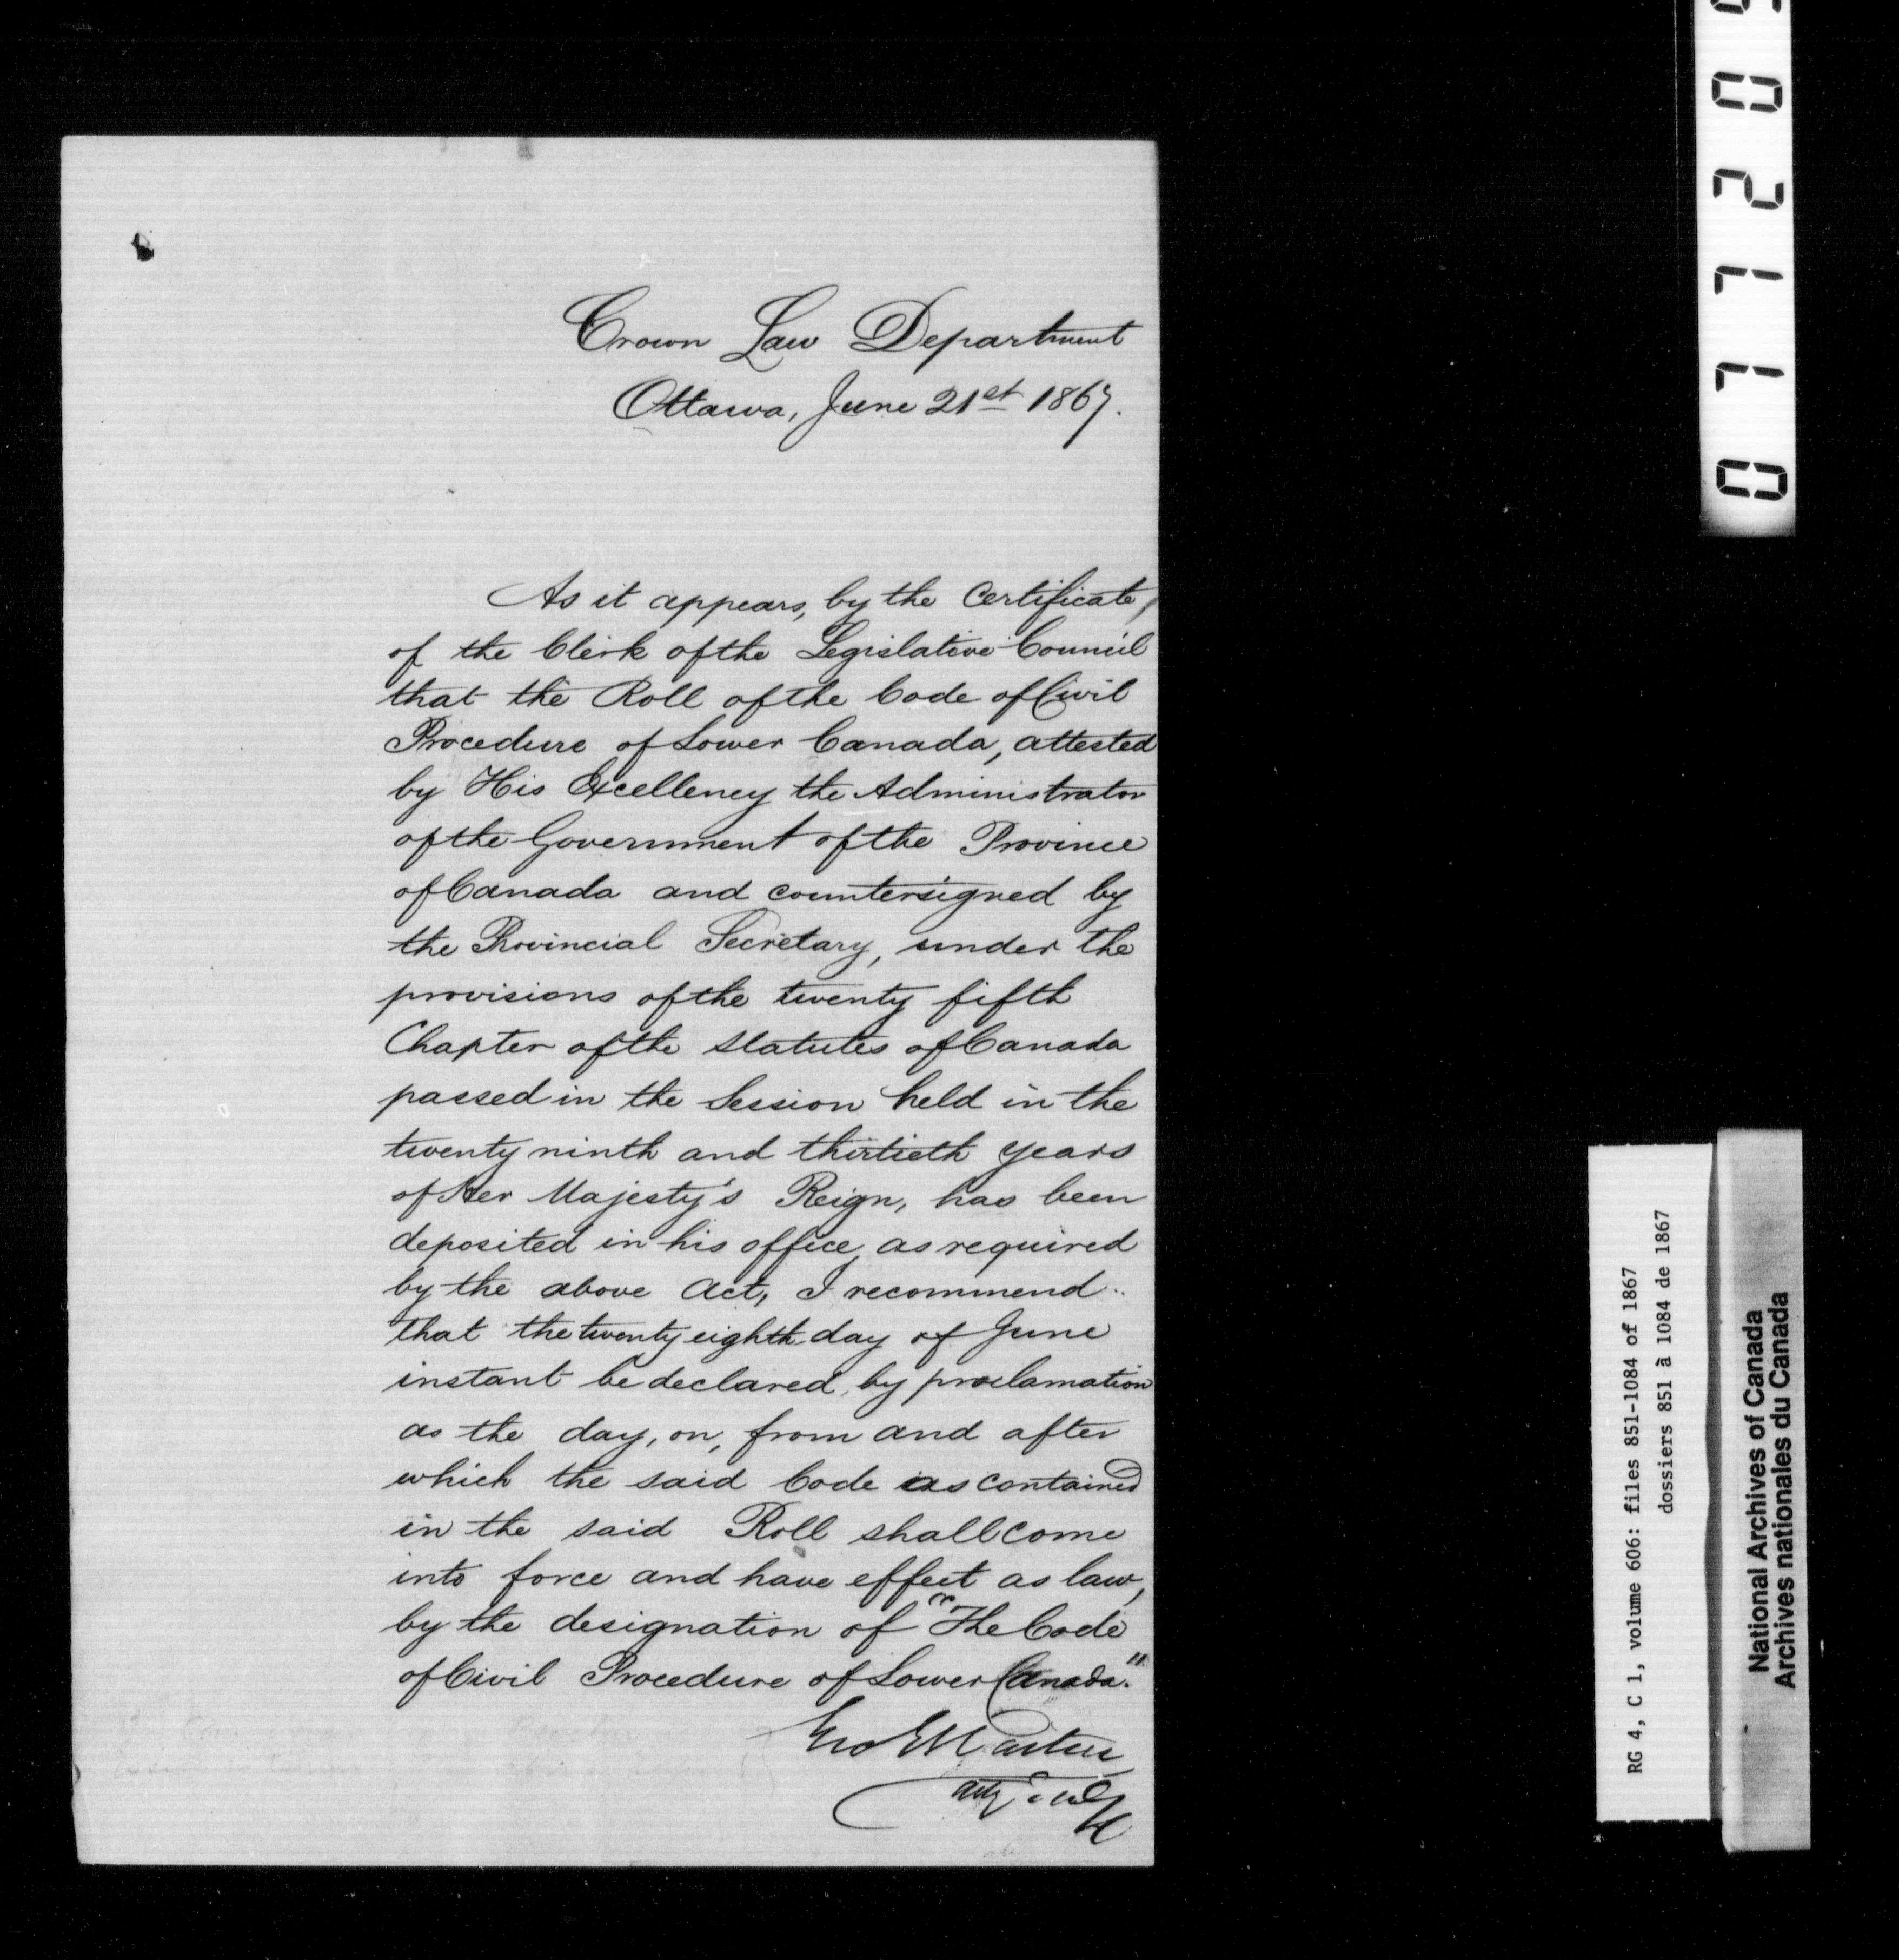 Crown Law Department
Ottawa, June 21st 1867.
As it appears, by the Certificate,
of the Clerk of the Legislative Council
that the Roll of the Code of Civil
Procedure of Lower Canada, attested
by His Excellency the Administrator
of the Government of the Province
of Canada and countersigned by
the Provincial Secretary, under the
provisions of the twenty fifth
Chapter of the Statutes of Canada
passed in the Session held in the
twenty ninth and thirtieth years
of Her Majesty's Reign, has been
deposited in his office, as required
by the above Act, I recommend
that the twenty eighth day of June
instant be declared, by proclamation
as the day, on, from and after
which the said Code as contained
in the said Roll shall come
into force and have effect as law,
by the designation of "The Code
of Civil Procedure of Lower Canada."
Geo E Cartier
Atty
071205
RG 4, C 1, volume 606: files 851-1084 of 1867
dossiers 851 à 1084 de 1867
National Archives of Canada
Archives nationales du Canada